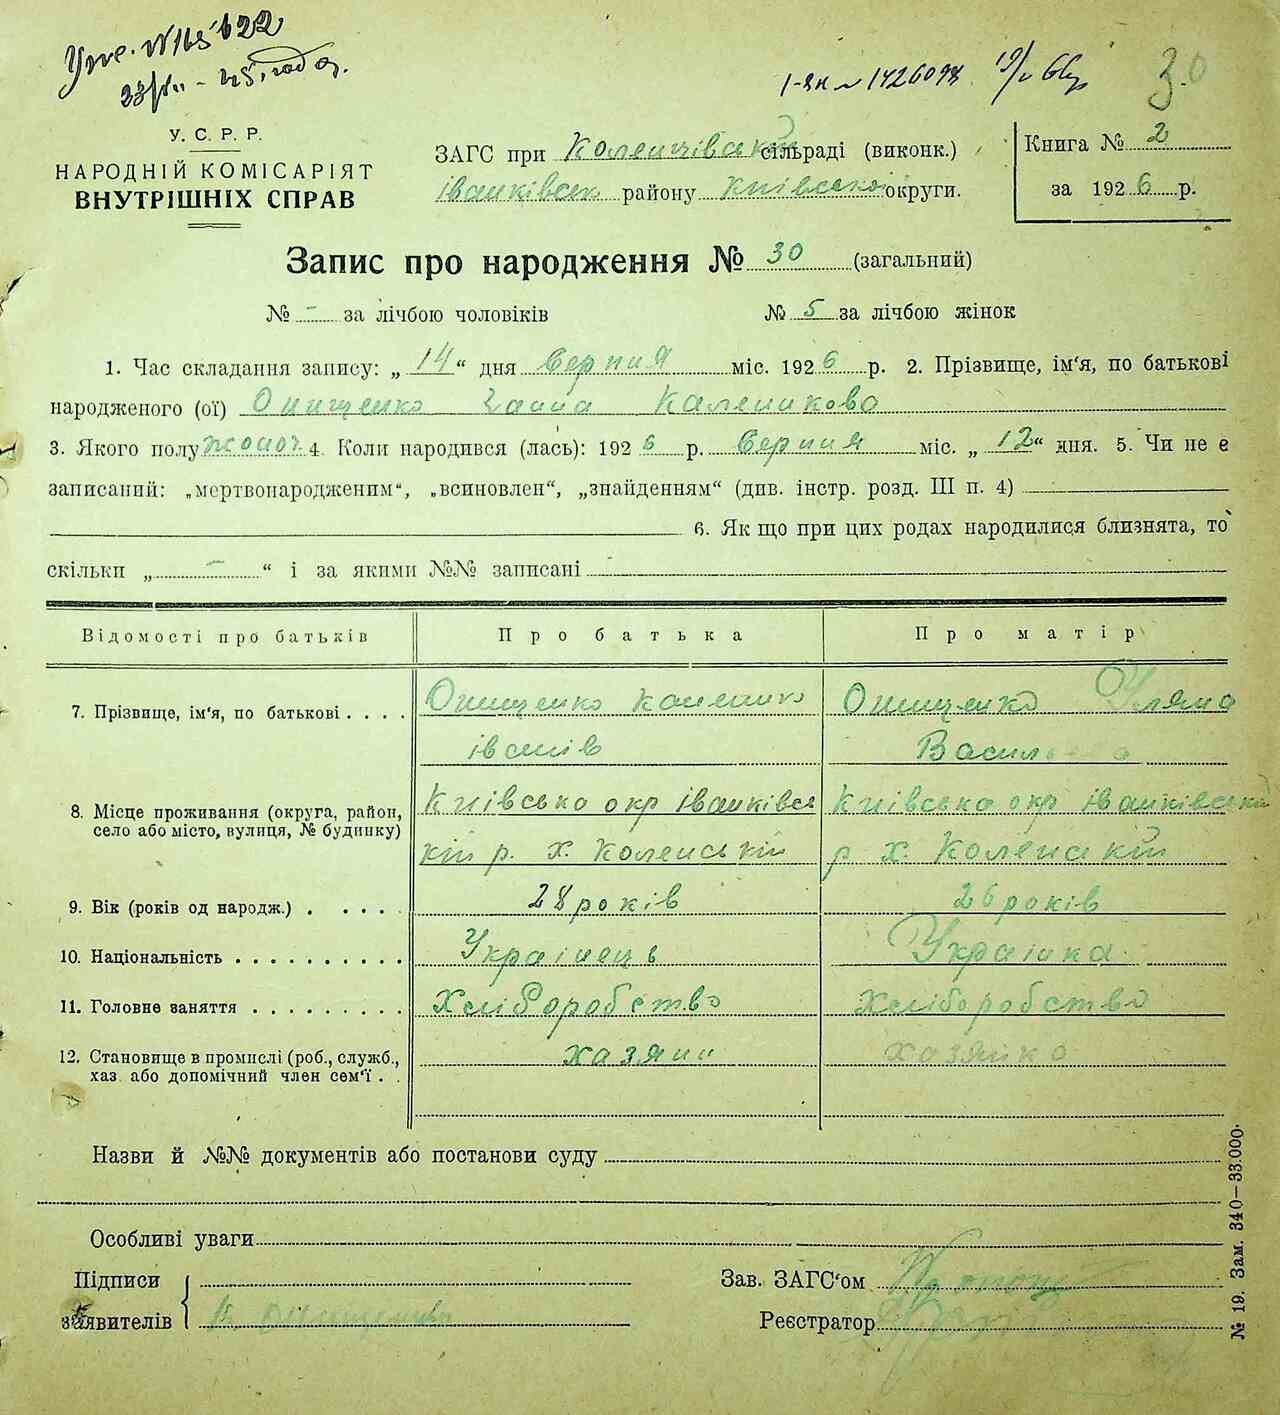 1-ян № 1426098
30
У. С. Р. Р.
НАРОДНІЙ КОМІСАРІЯТ
ВНУТРІШНІХ СПРАВ
ЗАГС при Коленцівській сільраді (виконк.)
іванківськ району Київської округи.
Книга № 2
за 1926 р.
Запис про народження № 30 (загальний)
№ - за лічбою чоловіків № 5 за лічбою жінок
1. Час складання запису: „14“ дня Серпня міс. 1926 р. 2. Прізвище, ім‘я, по батькові
народженого (ої) Онищенко Ганна Калеников๐
3. Якого полу жоноч. 4. Коли народився (лась): 1926 р. Серпня міс. „12“ дня. 5. Чи не є
записаний: „мертвонародженим“, „всиновлен“, „знайденням“ (див. інстр. розд. III п. 4)
6. Як що при цих родах народилися близнята, то
скільки „ - “ і за якими №№ записані
Відомості про батьків Про батька Про матір
7. Прізвище, ім‘я, по батькові . . . . Онищенко Каленико Онищенко Уляна
іванів Васильево
8. Місце проживання (округа, район, Київсько окр іванківсь Київсько окр іванківській
село або місто, вулиця, № будинку) кій р. х. Коленській р х. Коленській
9. Вік (років од народж.) . . . . . 28 років 26 років
10. Національність . . . . . . . . . . Українець Українка
11. Головне заняття . . . . . . . . . Хліборобство Хліборобство
12. Становище в промислі (роб., служб., хазяин хазяйко
хаз. або допомічний член сем‘ї . .
Назви й №№ документів або постанови суду
Особливі уваги
Підписи Зав. ЗАГС‘ом
заявителів Реєстратор
№ 19. Зам. 340—33.000.